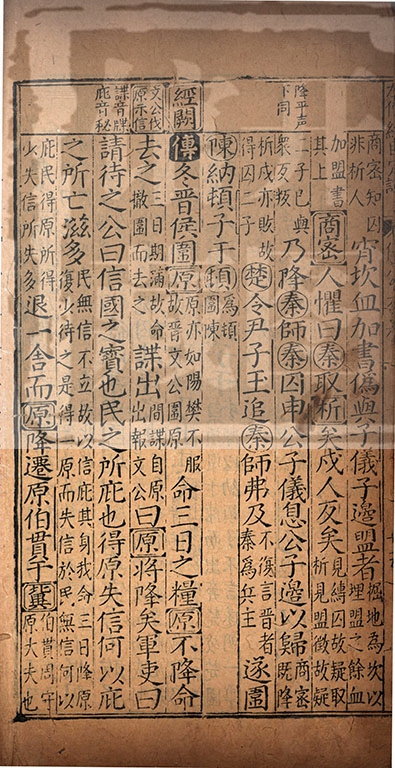 降平声
下同
商密知囚
非析人
宵坎血加書偽與子儀子邊盟者
掘地為坎以
埋盟之餘血
加盟書
其上
商密人懼曰秦取析矣戍人反矣
見縛囚故疑取
析見盟徵故疑
二子已與
衆反叛
乃降秦師秦囚申公子儀息公子邊以歸
商密
既降
析戍亦敗故
得囚二子
楚令尹子玉追秦師弗及
不復言晉者
秦為兵主
遂圍
陳納頓子于頓
為頓
圍陳
經闕
傳冬晉侯圍原
原亦如陽樊不服
故晉文公圍原
命三日之糧原不降命
文公伐
原示信
去之
三日期滿故命
撤圍而去之
諜出
間諜自原
出報文公
曰原將降矣軍吏曰
諜音牒
庇音秘
請待之公曰信國之寶也民之所庇也得原失信何以庇
之所亡滋多
民無信不立故以信庇其身我今三日降原
復少待之是得一原而失信於民無信何以
庇民得原所得
少失信所失多
退一舍而原降遷原伯貫于冀
伯貫周守
原大夫也